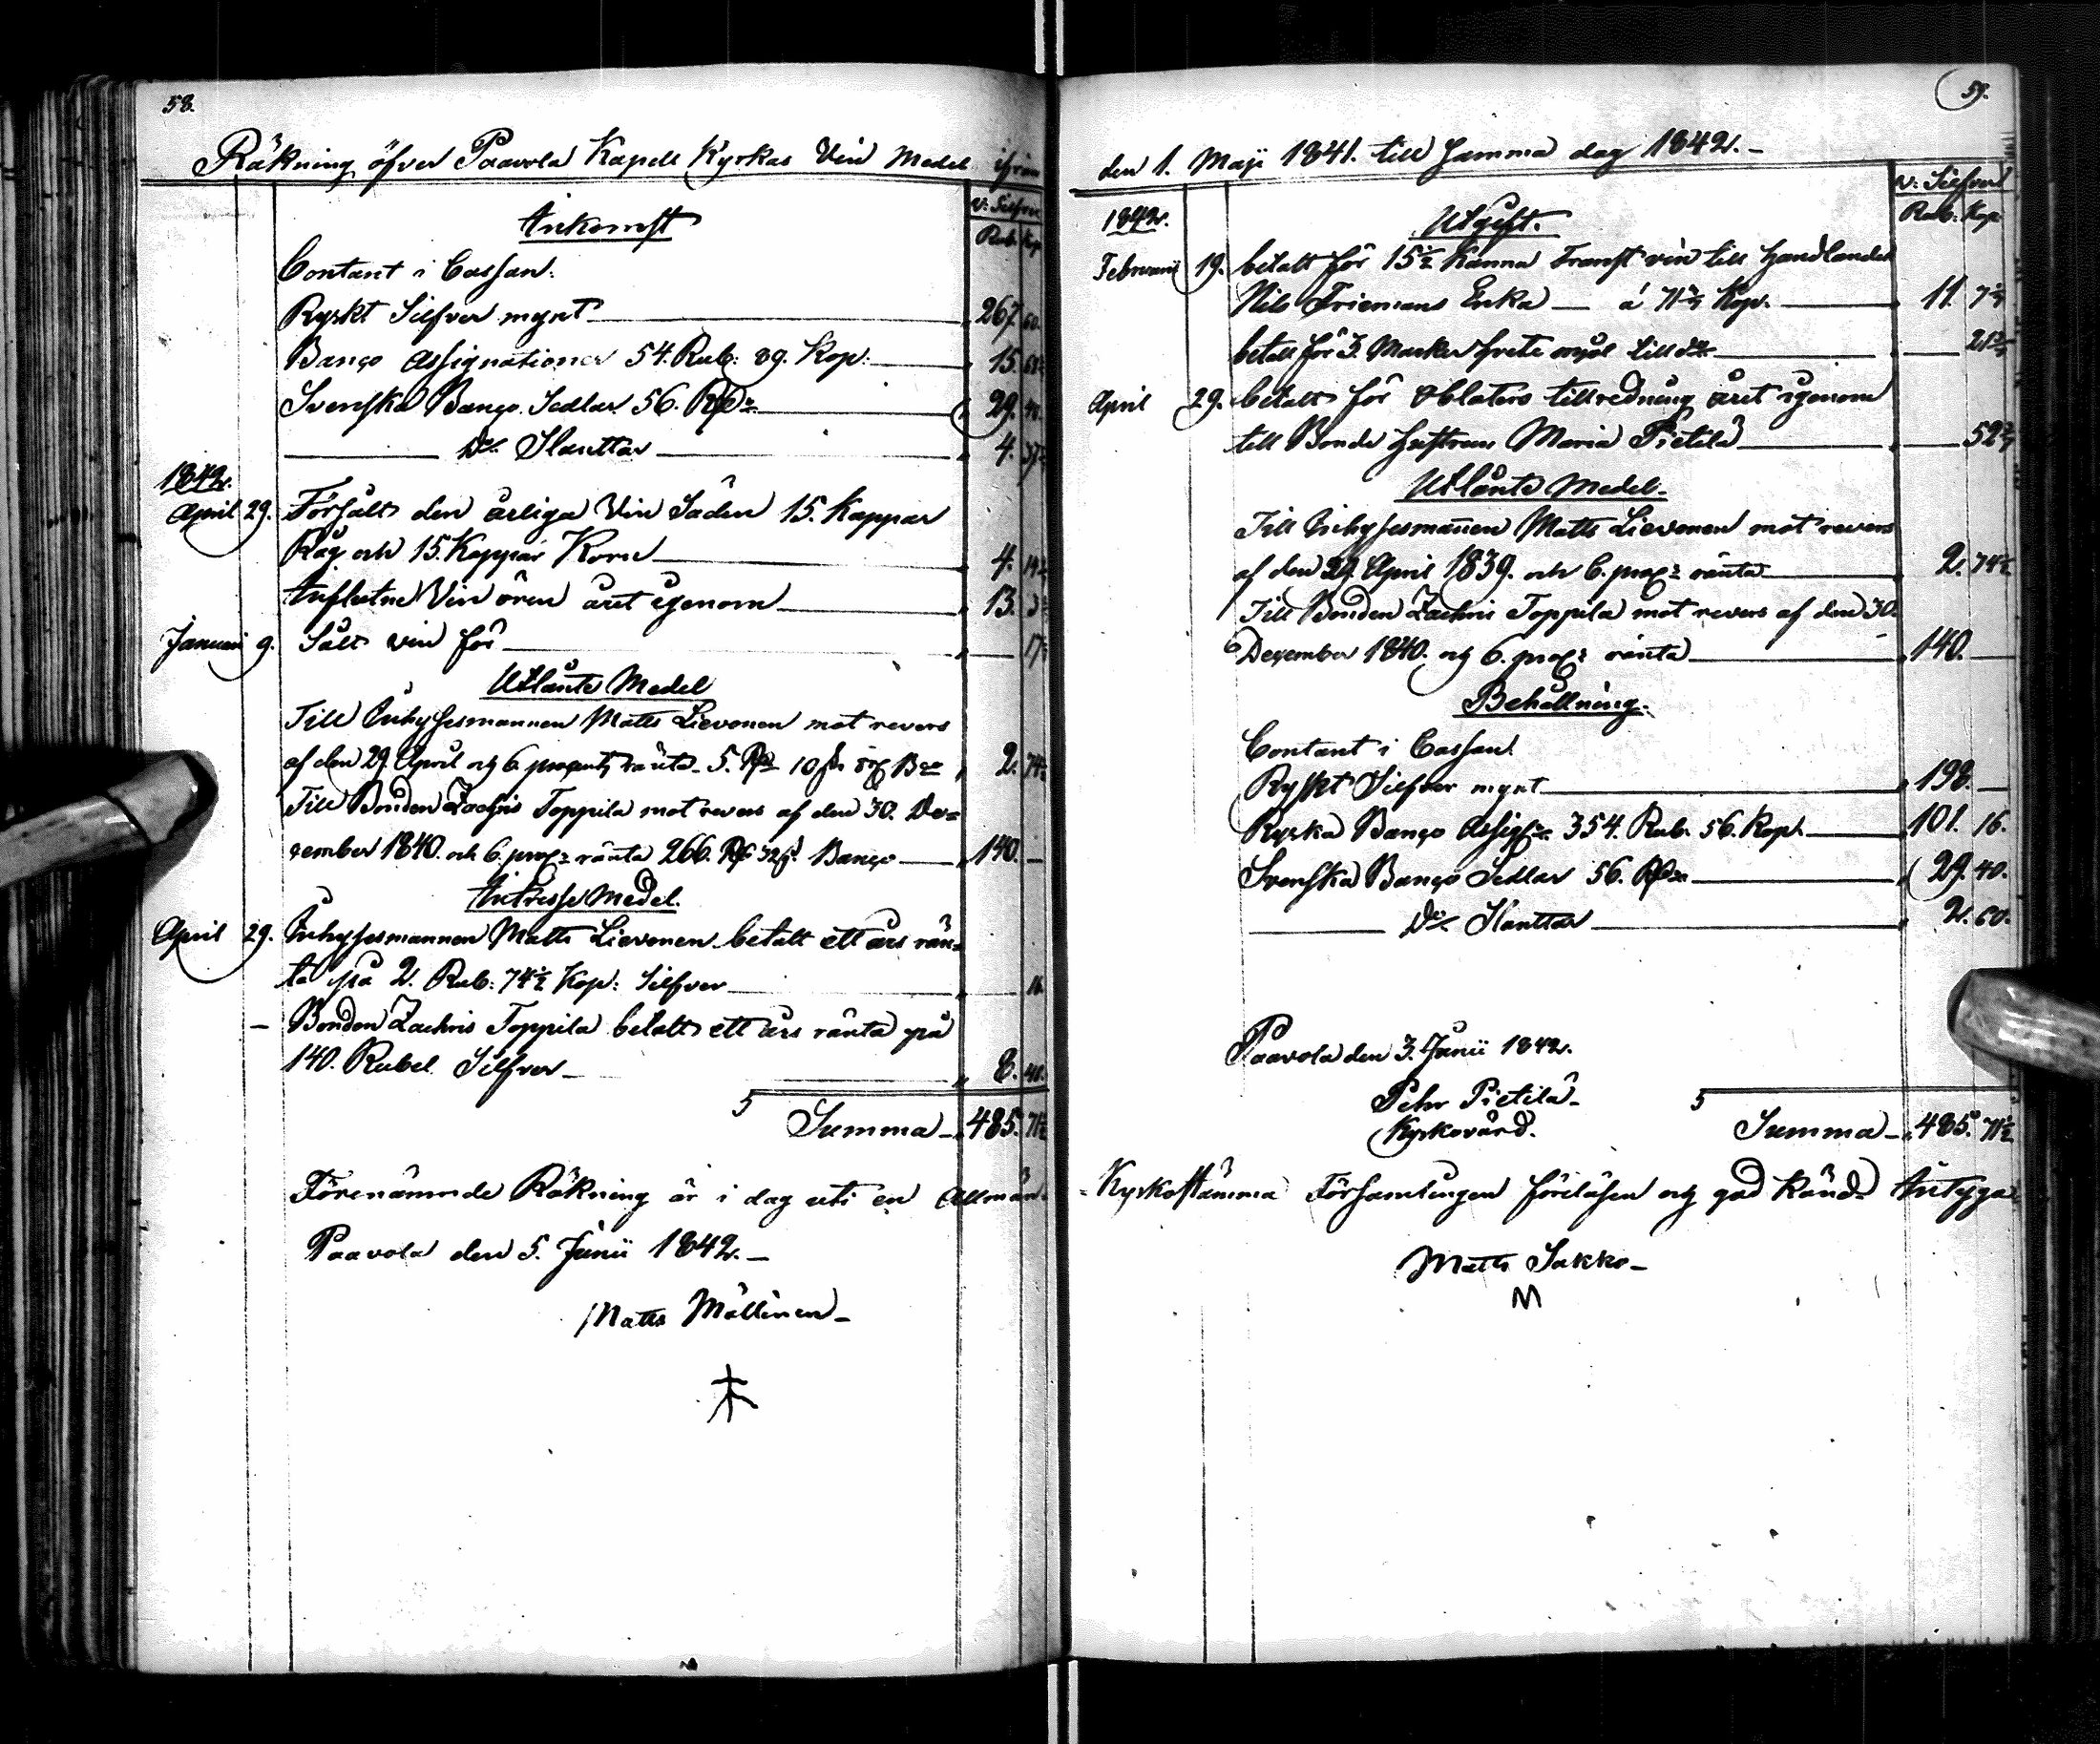 58.
Räkning öfver Paavola Kapell Kyrkas Vin Medel ifrån
S:r Silfver
Rub. Kop
Inkomst
Contant i Cassan:
Ryskt Silfver mynt 267. 60.
Banco Assignationer 54. Rub: 89. Kop: 15.
Svenska Banco Sedlar 56. Rdr 29. 40.
Do Slanttar 4.
1842.
April 29. Försålts den årliga Vin Säden 15. Kappar
Råg och 15. Kappar Korn 4.
Influtne Vin ören året igenom 13.
Januari 9. Sålt vin för
Utlånte Medel
Till Inhysesmannen Matts Lievonen mot revers
af den 29. April och 6. procents ränta 5. Rdr 10 Bco 2. 74½
Till Bonden Zachris Toppila mot revers af den 30. De=
cember 1840. och 6. proc: ränta 266. Rdr 32 Banco 140. —
Intresse Medel.
April 29. Inhysesmannen Matts Lievonen betalt ett års rän=
ta på 2. Rub: 74½ Kop: Silfver 16.
— Bonden Zachris Toppila betalt ett års ränta på
140. Rubel Silfver 8. 40.
Summa 485. 71½
Förenämnde Räkning är i dag uti en Allmän
Paavola den 5. Junii 1842.
Matts Mällinen
59.
den 1. Maji 1841. till samma dag 1842.
Silfver
Rub: Kop:
1842.
Utgift.
Februarii 19. betalt för 15½ Kanna Franst vin till Handlanden
Nils Friemans Enka — á 71 3/7 Kop. 11. 7 1/7
betalt för 3. Marker hvete mjöl till do 21 3/7
April 29. betalt för Oblaters tillredning året igenom
till Bonde hustrun Maria Pietilä 52
Utlånte Medel.
Till Inhysesmannen Matts Lievonen mot revers
af den 29. April 1839. och 6. proc: ränta 2. 74½
Till Bonden Zachris Toppila mot revers af den 30.
December 1840. och 6. proc: ränta 140. —
Behållning.
Contant i Cassan:
Ryskt Silfver mynt 198. —
Ryska Banco Assig: 354. Rub. 56. Kop. 101. 16.
Svenska Banco Sedlar 56. Rdr 29. 40.
Do Slanttar 2. 60.
Paavola den 3. Junii 1842.
Pehr Pietilä
Kyrkovärd.
Summa 485. 71½
Kyrkostämma Församlingen föreläsen och god känd Intyga
Matts Sakko
M